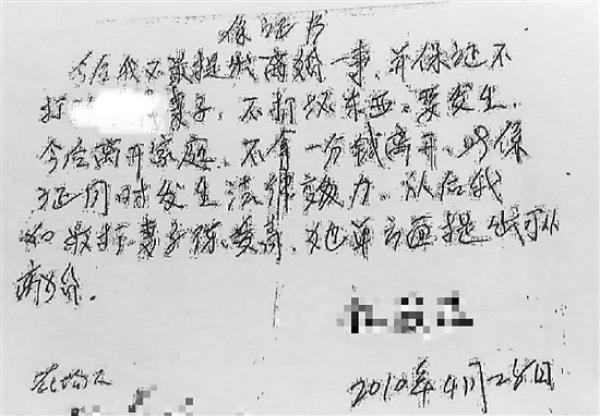 保证书
今后我不敢提出离婚一事,并保证不
打 妻子,不打坏东西,要发生,
今后离开家庭,不拿一分钱离开,此保
证同时发生法律效力,从后我
如敢打妻子 ,她单方面提出可以
离婚。
2010年4月28日